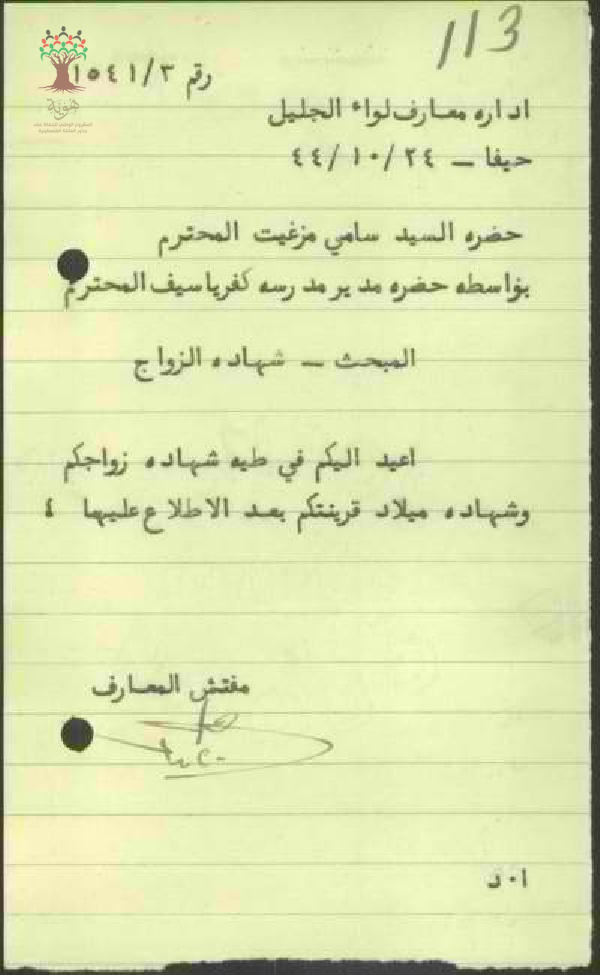 113
رقم ١٥٤١/٣
هوية
اداره معارف لواء الجليل
حيفا – ٤٤/١٠/٢٤
حضره السيد سامي مزغيت المحترم
بواسطه حضره مدير مدرسه كفرياسيف المحترم
المبحث – شهاده الزواج
اعيد اليكم في طيه شهاده زواجكم
وشهاده ميلاد قرينتكم بعد الاطلاع عليها ٤
مفتش المعارف
ا٠د